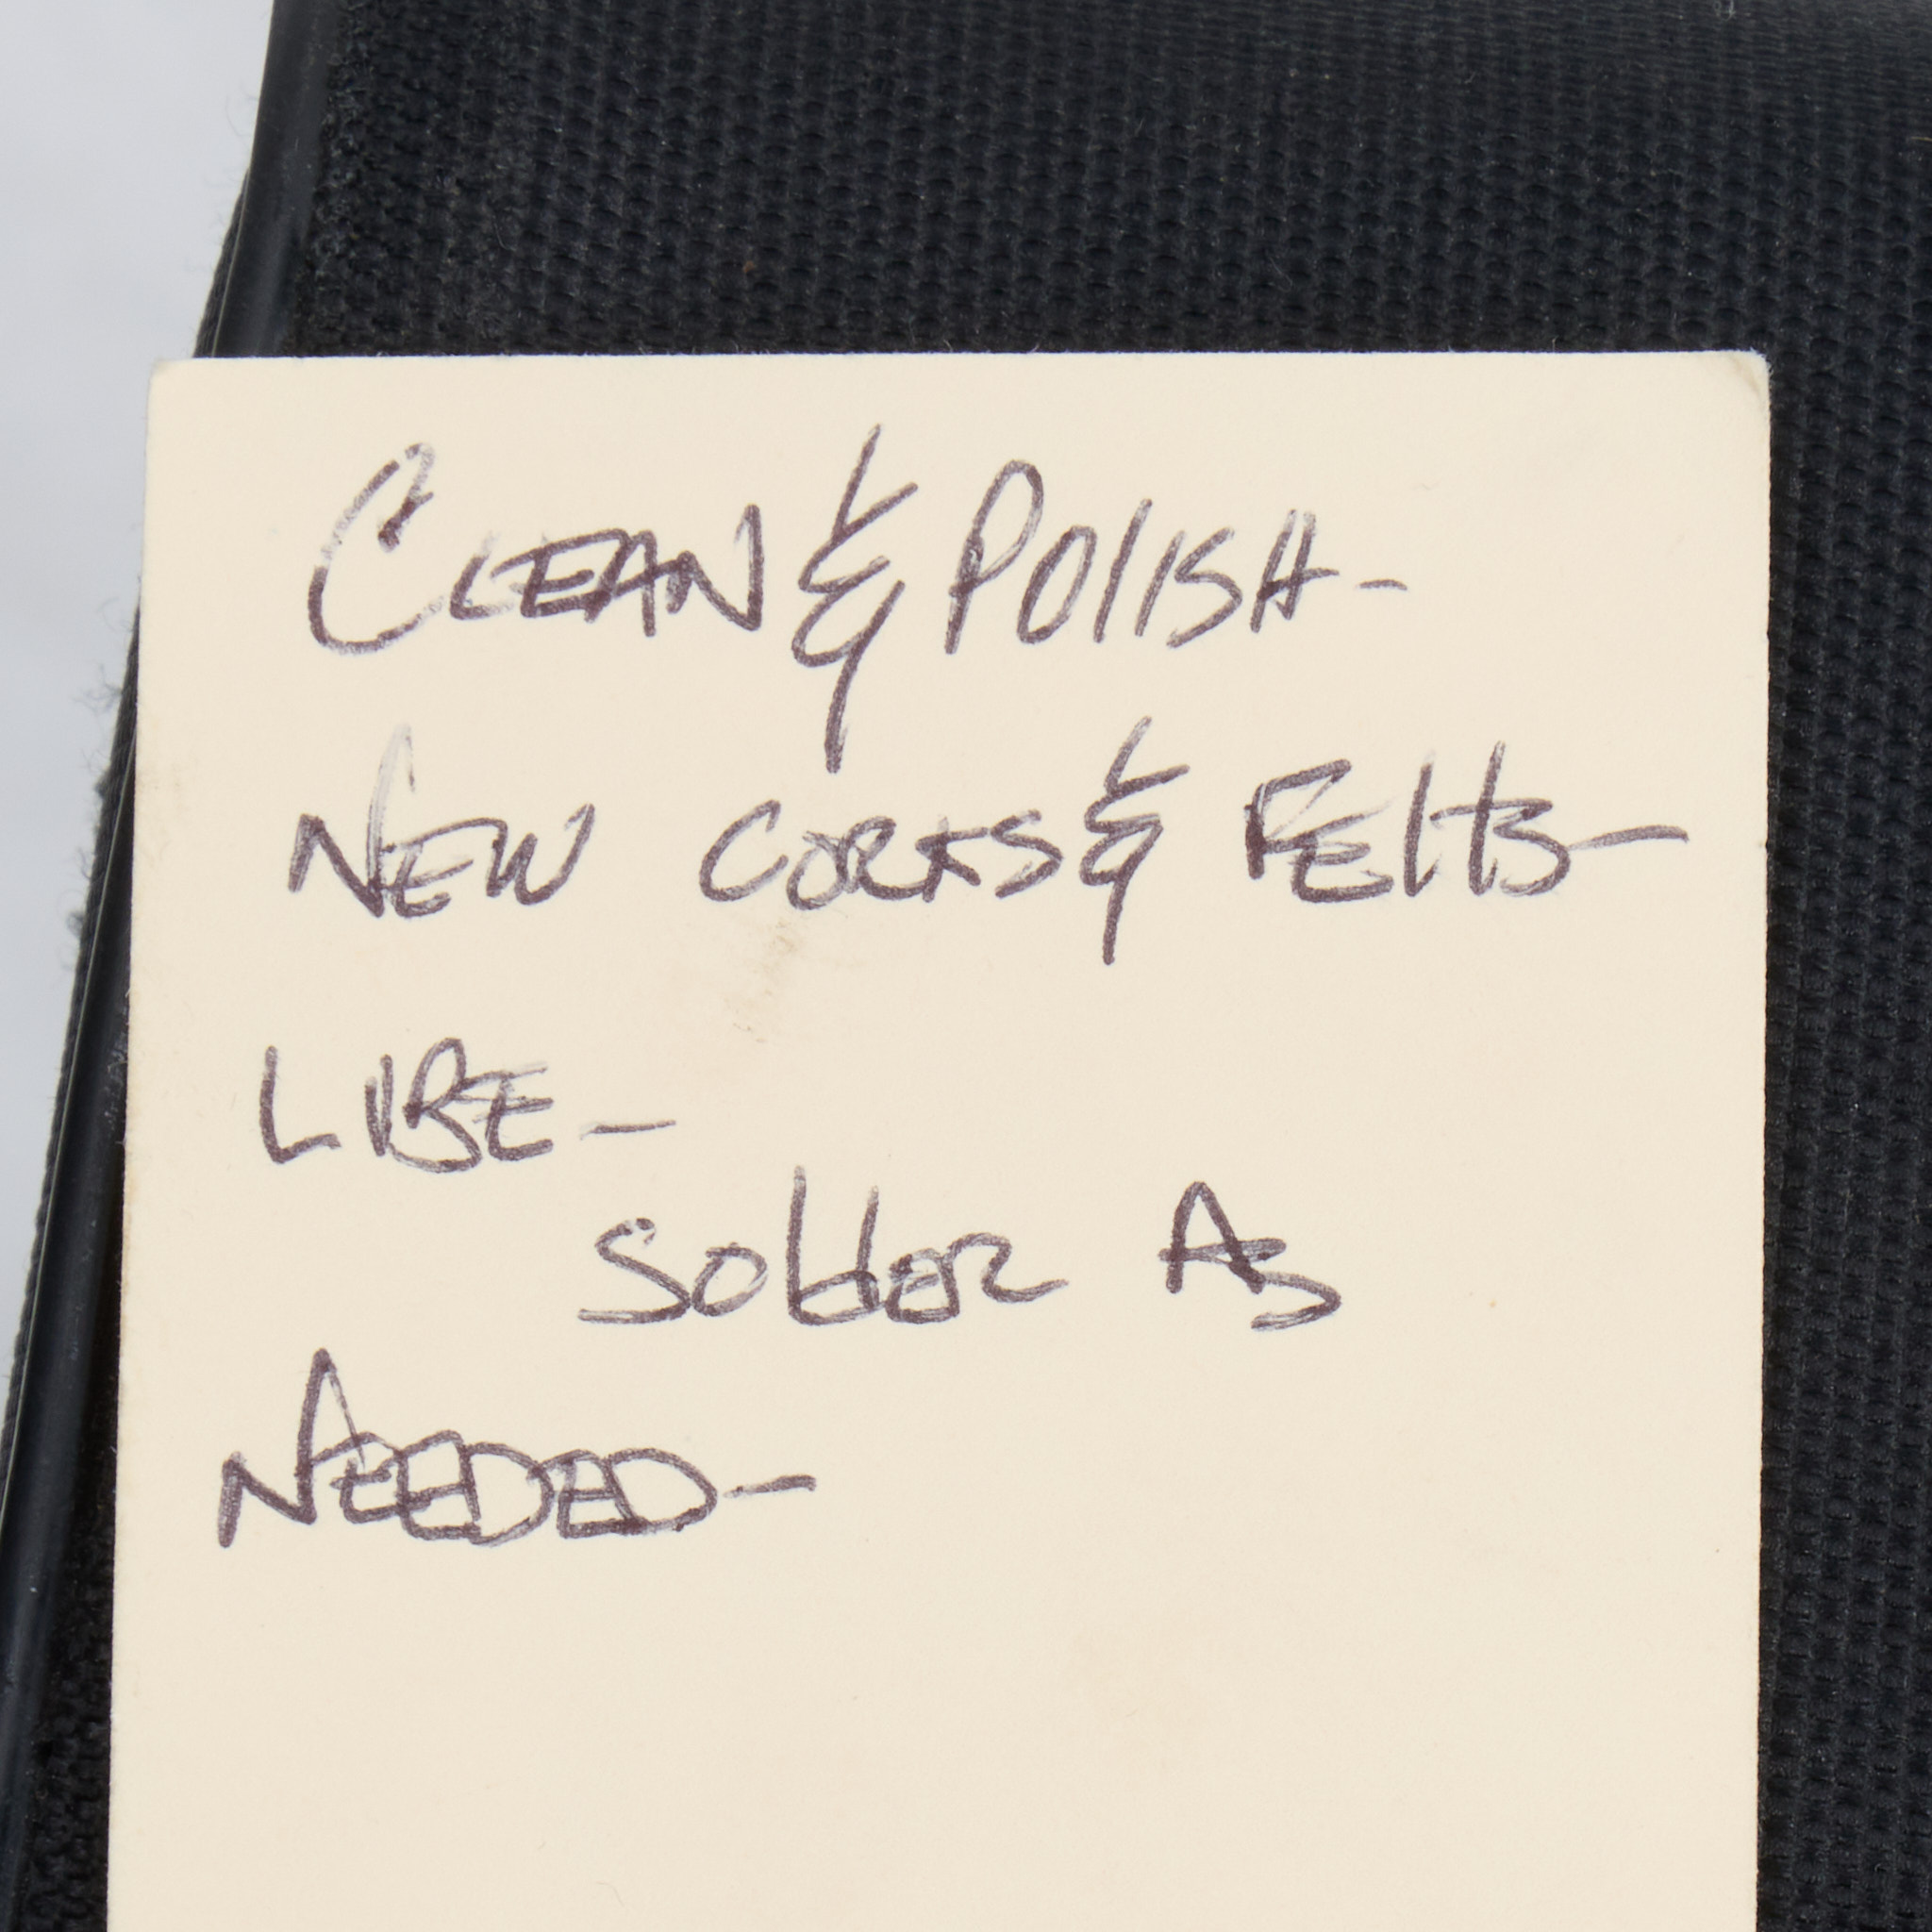 CLEAN & POLISH-
NEW CORKS & FELTS-
LUBE-
SOLDER AS
NEEDED-